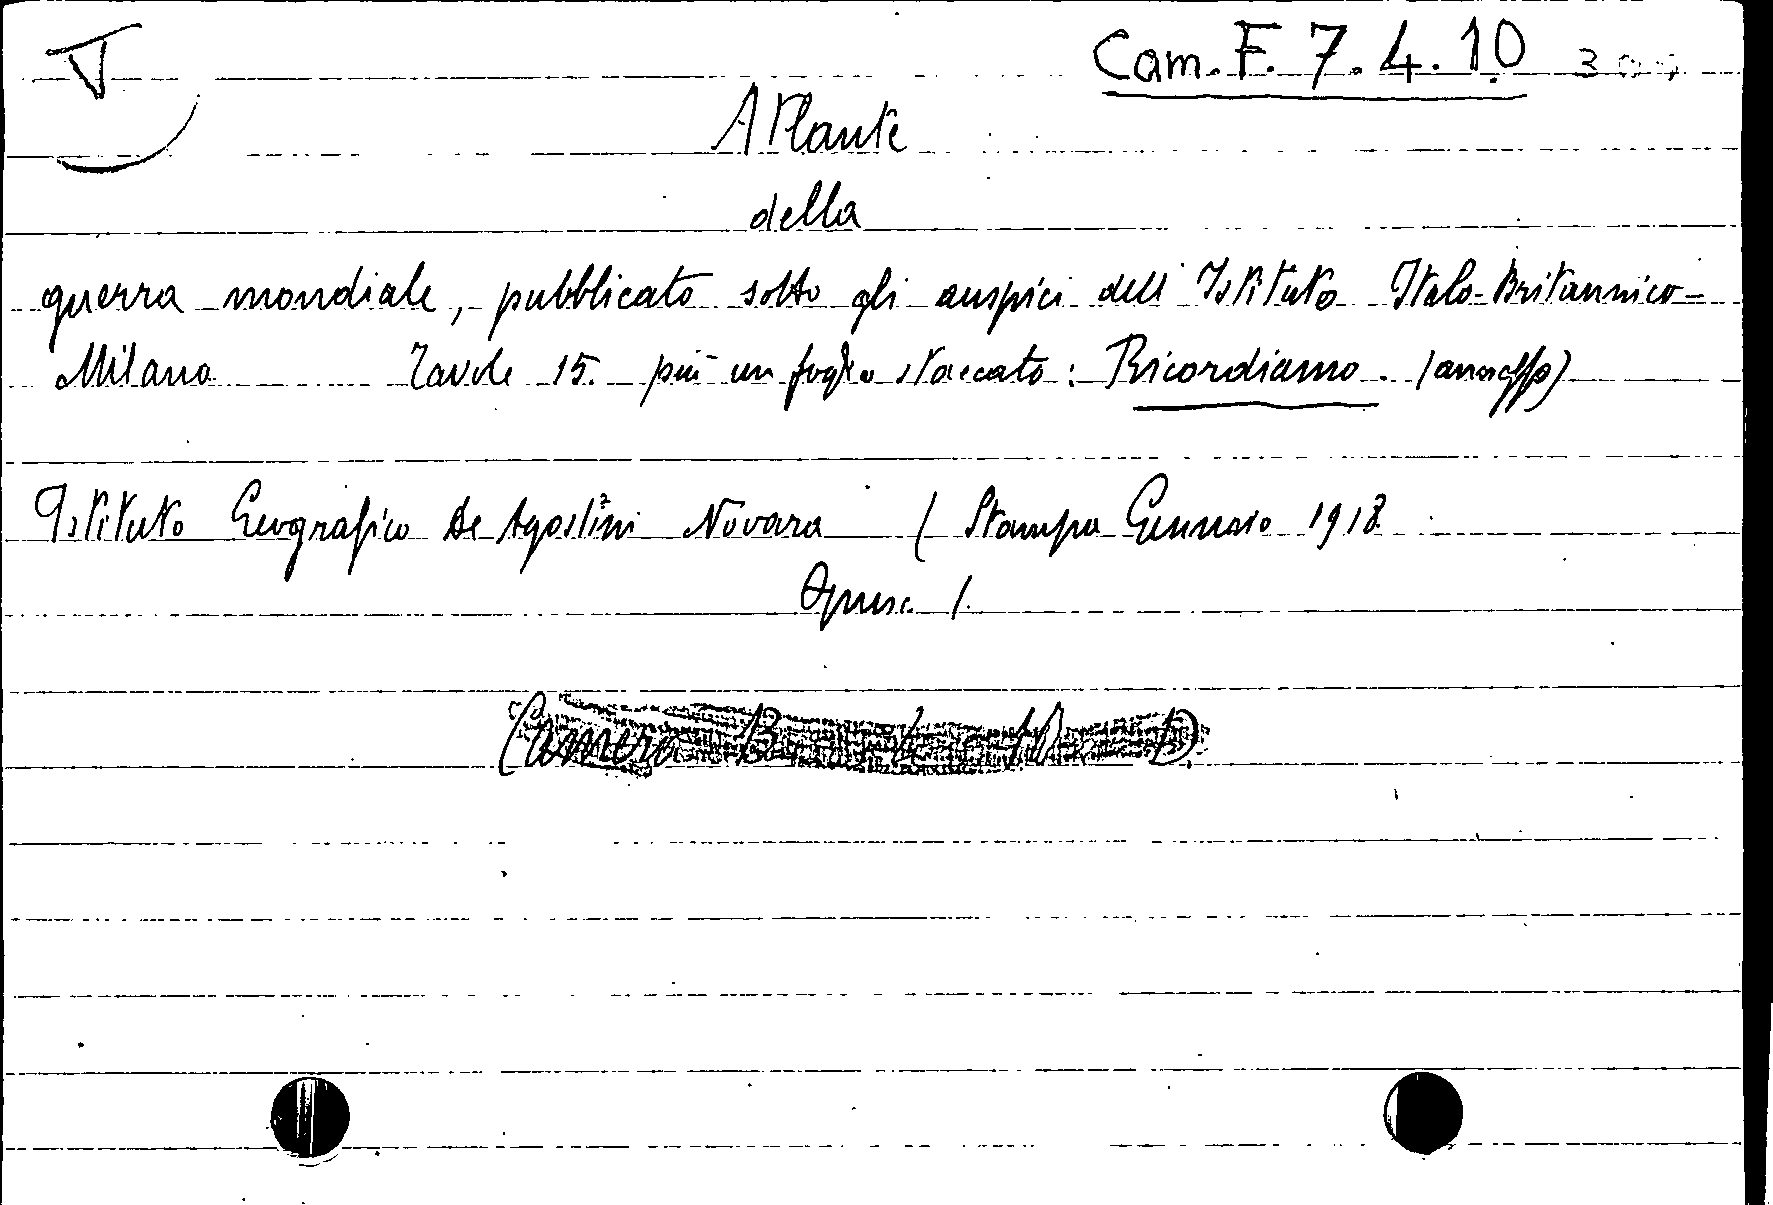 Cam. F. 7. 4. 10
Atlante
della
guerra mondiale, pubblicato sotto gli auspici dell'Istituto Italo-Britannico-
Milano Tavole 15. più un foglio staccato: Ricordiamo.
Istituto Geografico De Agostini Novara ( Stampa Gennaio 1918
Opusc. 1.
Camera